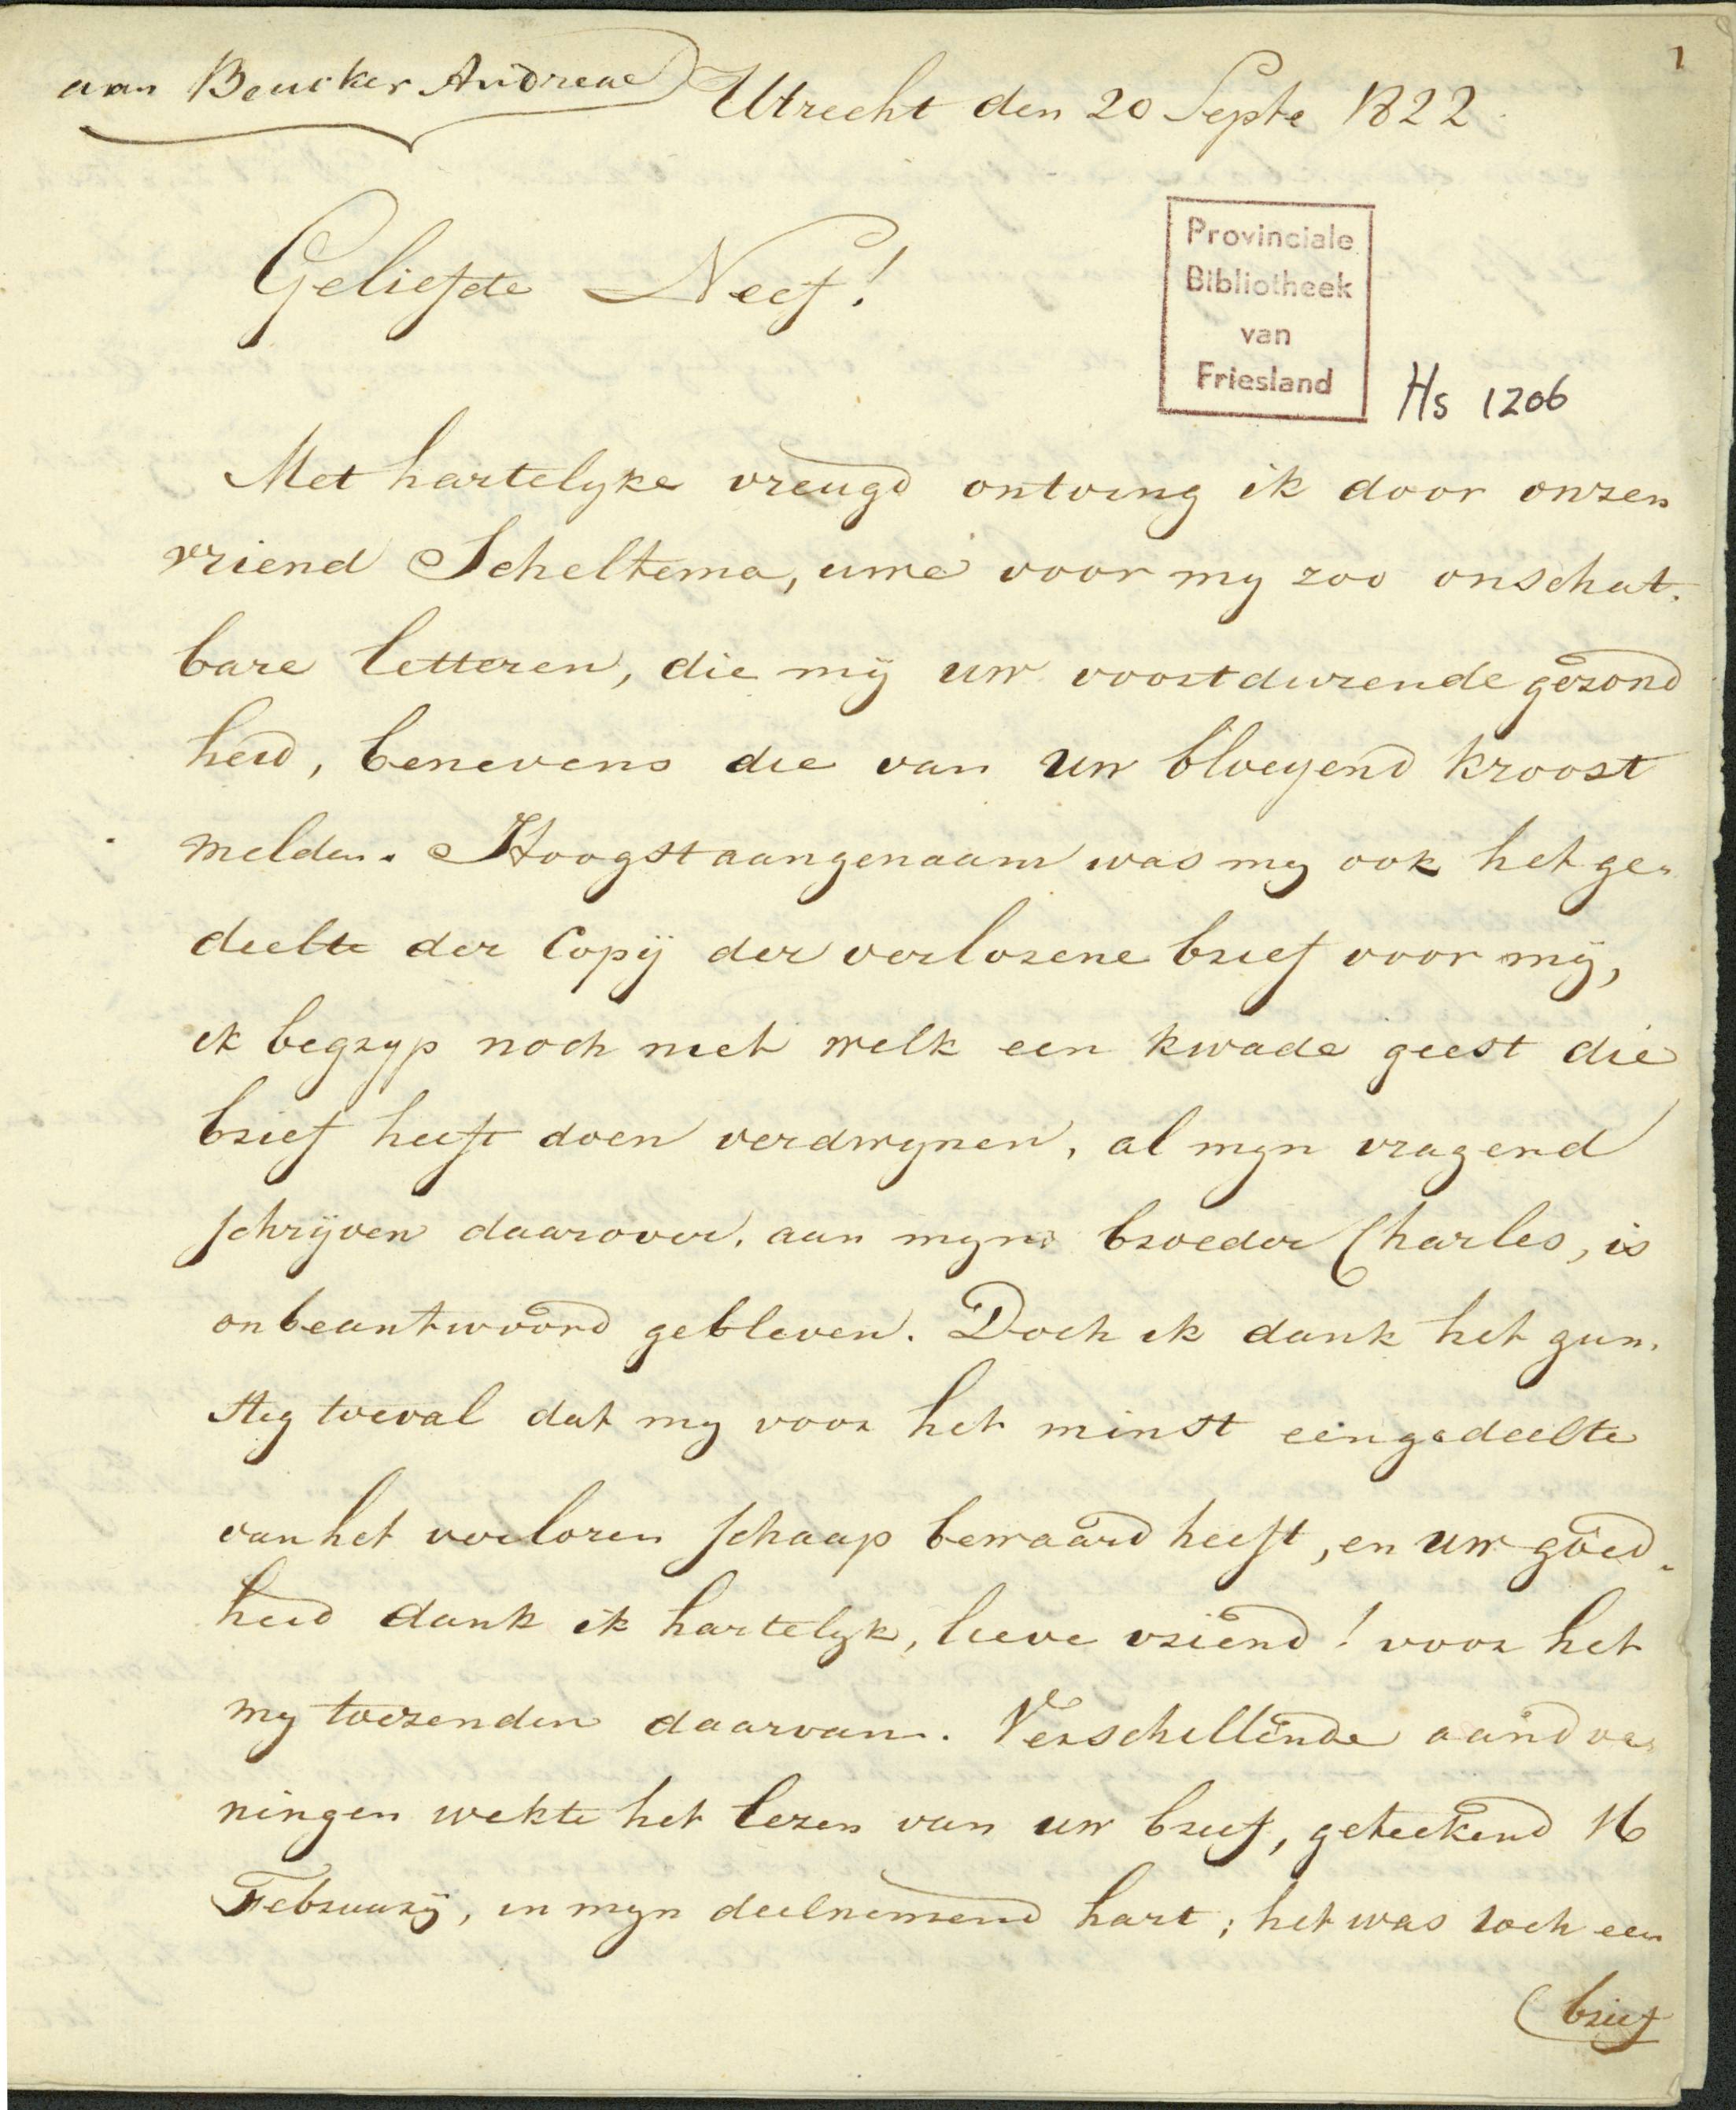 1
aan Beucker Andreae
Utrecht den 20 Septe 1822.
Geliefde Neef!
Provinciale
Bibliotheek
van
Friesland
Hs 1206
Met hartelyke vreugd ontving ik door onzen
vriend Scheltema, uwe voor my zoo onschat-
bare letteren, die mÿ uw voortdurende gezond
heid, benevens die van uw bloeyend kroost
melden. Hoogst aangenaam was my ook het ge-
deelte der Copÿ der verlorene brief voor mÿ,
ik begryp noch niet welk een kwade geest die
brief heeft doen verdwynen, al myn vragend
schrÿven daarover, aan myn broeder Charles, is
onbeantwoord gebleven. Doch ik dank het gun-
stig toeval dat my voor het minst een gedeelte
van het verloren schaap bewaard heeft, en uw goed-
heid dank ik hartelyk, lieve vriend! voor het
my toezenden daarvan. Verschillende aandoe-
ningen wekte het lezen van uw brief, geteekend 16
Februarÿ, in myn deelnemend hart; het was toch een
brief